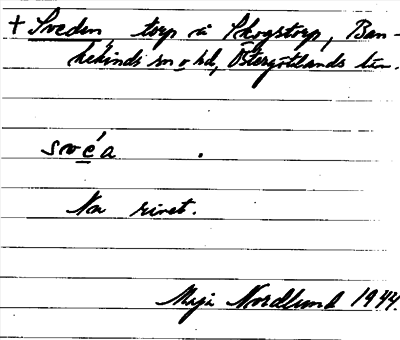 + Sveden, torp å Skogstorp, Ban-
kekinds sn o hd, Östergötlands län.
svéa .
Nu rivet.
Maja Nordlund 1944.